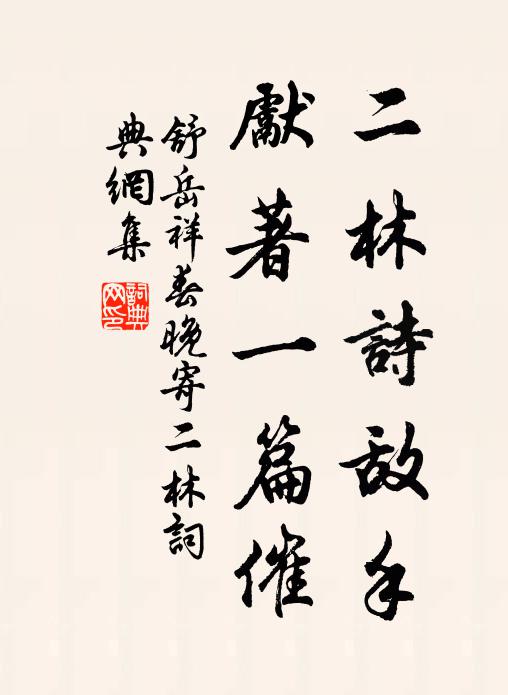 二林詩敌手
獻著一篇催
舒岳祥春晚寄二林詞
典網集
詞典
网印